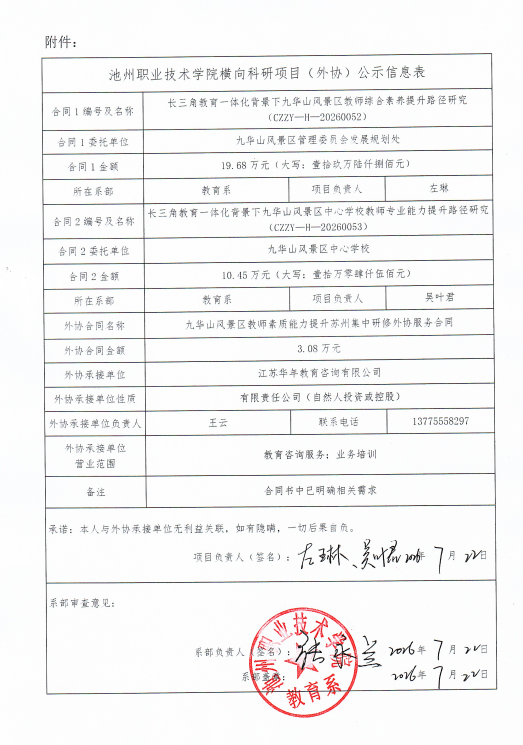 附件:
池州职业技术学院横向科研项目（外协）公示信息表
合同1编号及名称 长三角教育一体化背景下九华山风景区教师综合素养提升路径研究
（CZZY—H—20260052）
合同1委托单位 九华山风景区管理委员会发展规划处
合同1金额 19.68万元（大写：壹拾玖万陆仟捌佰元）
所在系部 教育系 项目负责人 左琳
合同2编号及名称 长三角教育一体化背景下九华山风景区中心学校教师专业能力提升路径研究
（CZZY—H—20260053）
合同2委托单位 九华山风景区中心学校
合同2金额 10.45万元（大写：壹拾万零肆仟伍佰元）
所在系部 教育系 项目负责人 吴叶君
外协合同名称 九华山风景区教师素质能力提升苏州集中研修外协服务合同
外协合同金额 3.08万元
外协承接单位 江苏华年教育咨询有限公司
外协承接单位性质 有限责任公司（自然人投资或控股）
外协承接单位负责人 王云 联系电话 13775558297
外协承接单位
营业范围 教育咨询服务；业务培训
备注 合同书中已明确相关需求
承诺：本人与外协承接单位无利益关联，如有隐瞒，一切后果自负。
项目负责人（签名）： 左琳、吴叶君 2026年 7月 22日
系部审查意见：
系部负责人（签名）： 2026年 7月 22日
系部盖章 2026年 7月 22日
池州职业技术学院
教育系